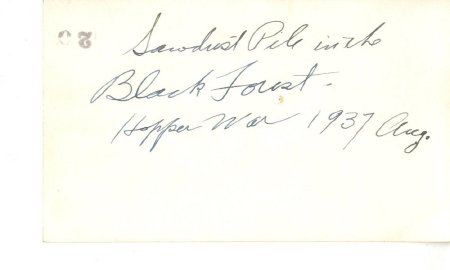 Sawdust Pile in the
Black Forest.
Hopper War 1937 Aug.